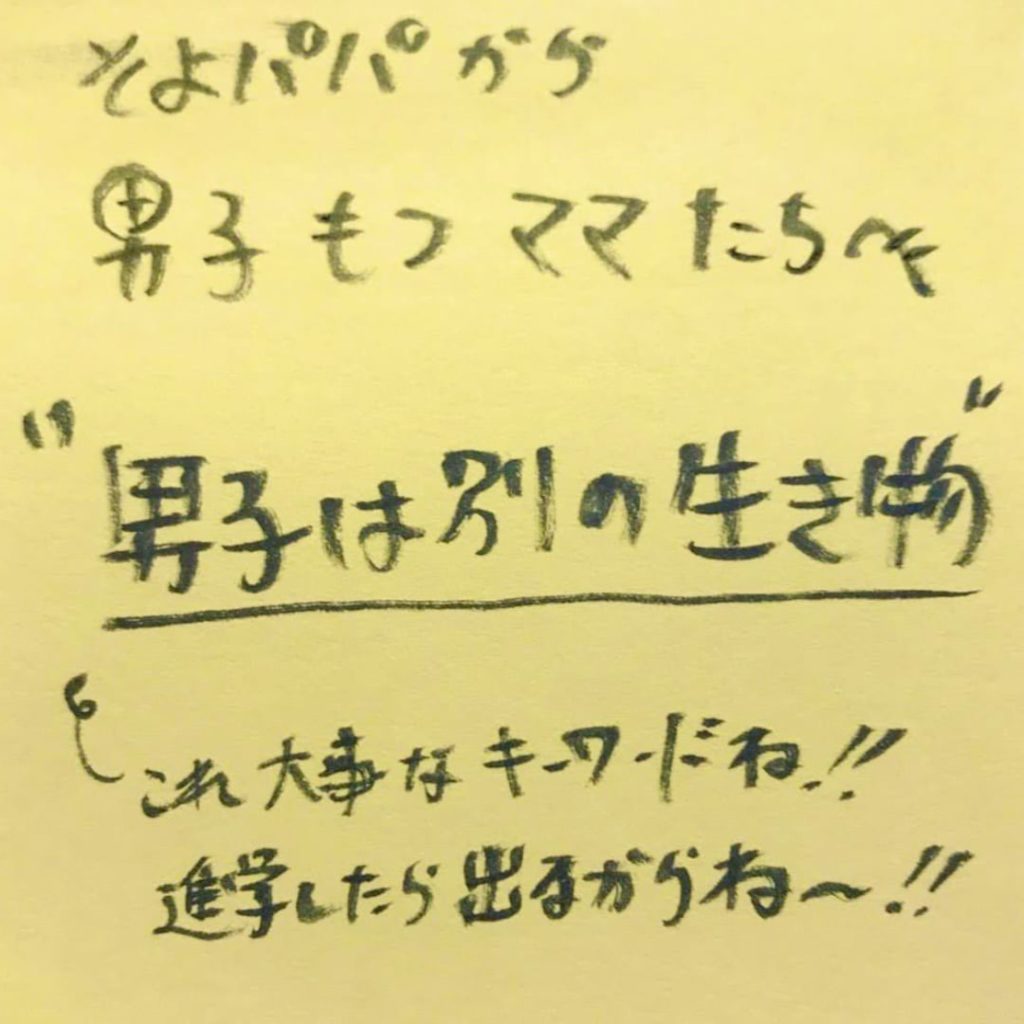 そよパパから
男子もつママたちへ
"男子は別の生き物"
これ大事なキーワードだね!!
進学したら出るからね〜!!